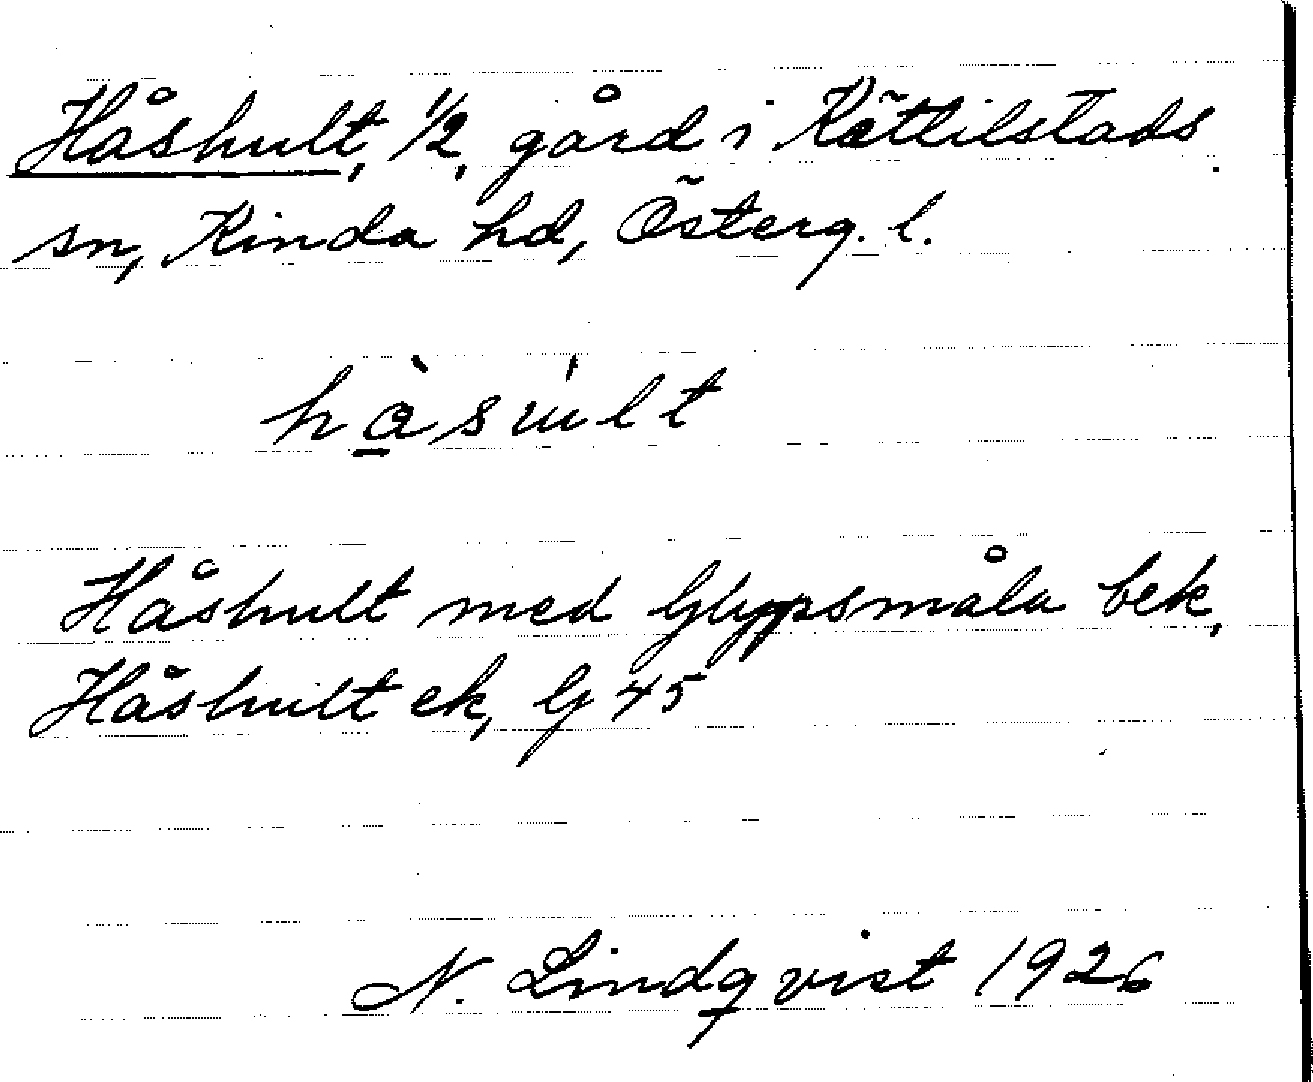 Håshult, 1/2, gård i Kättilstads
sn, Kinda hd, Österg. l.
hàsult
Håshult med Glypsmåla bek,
Håshult ek, G 45
N. Lindqvist 1926